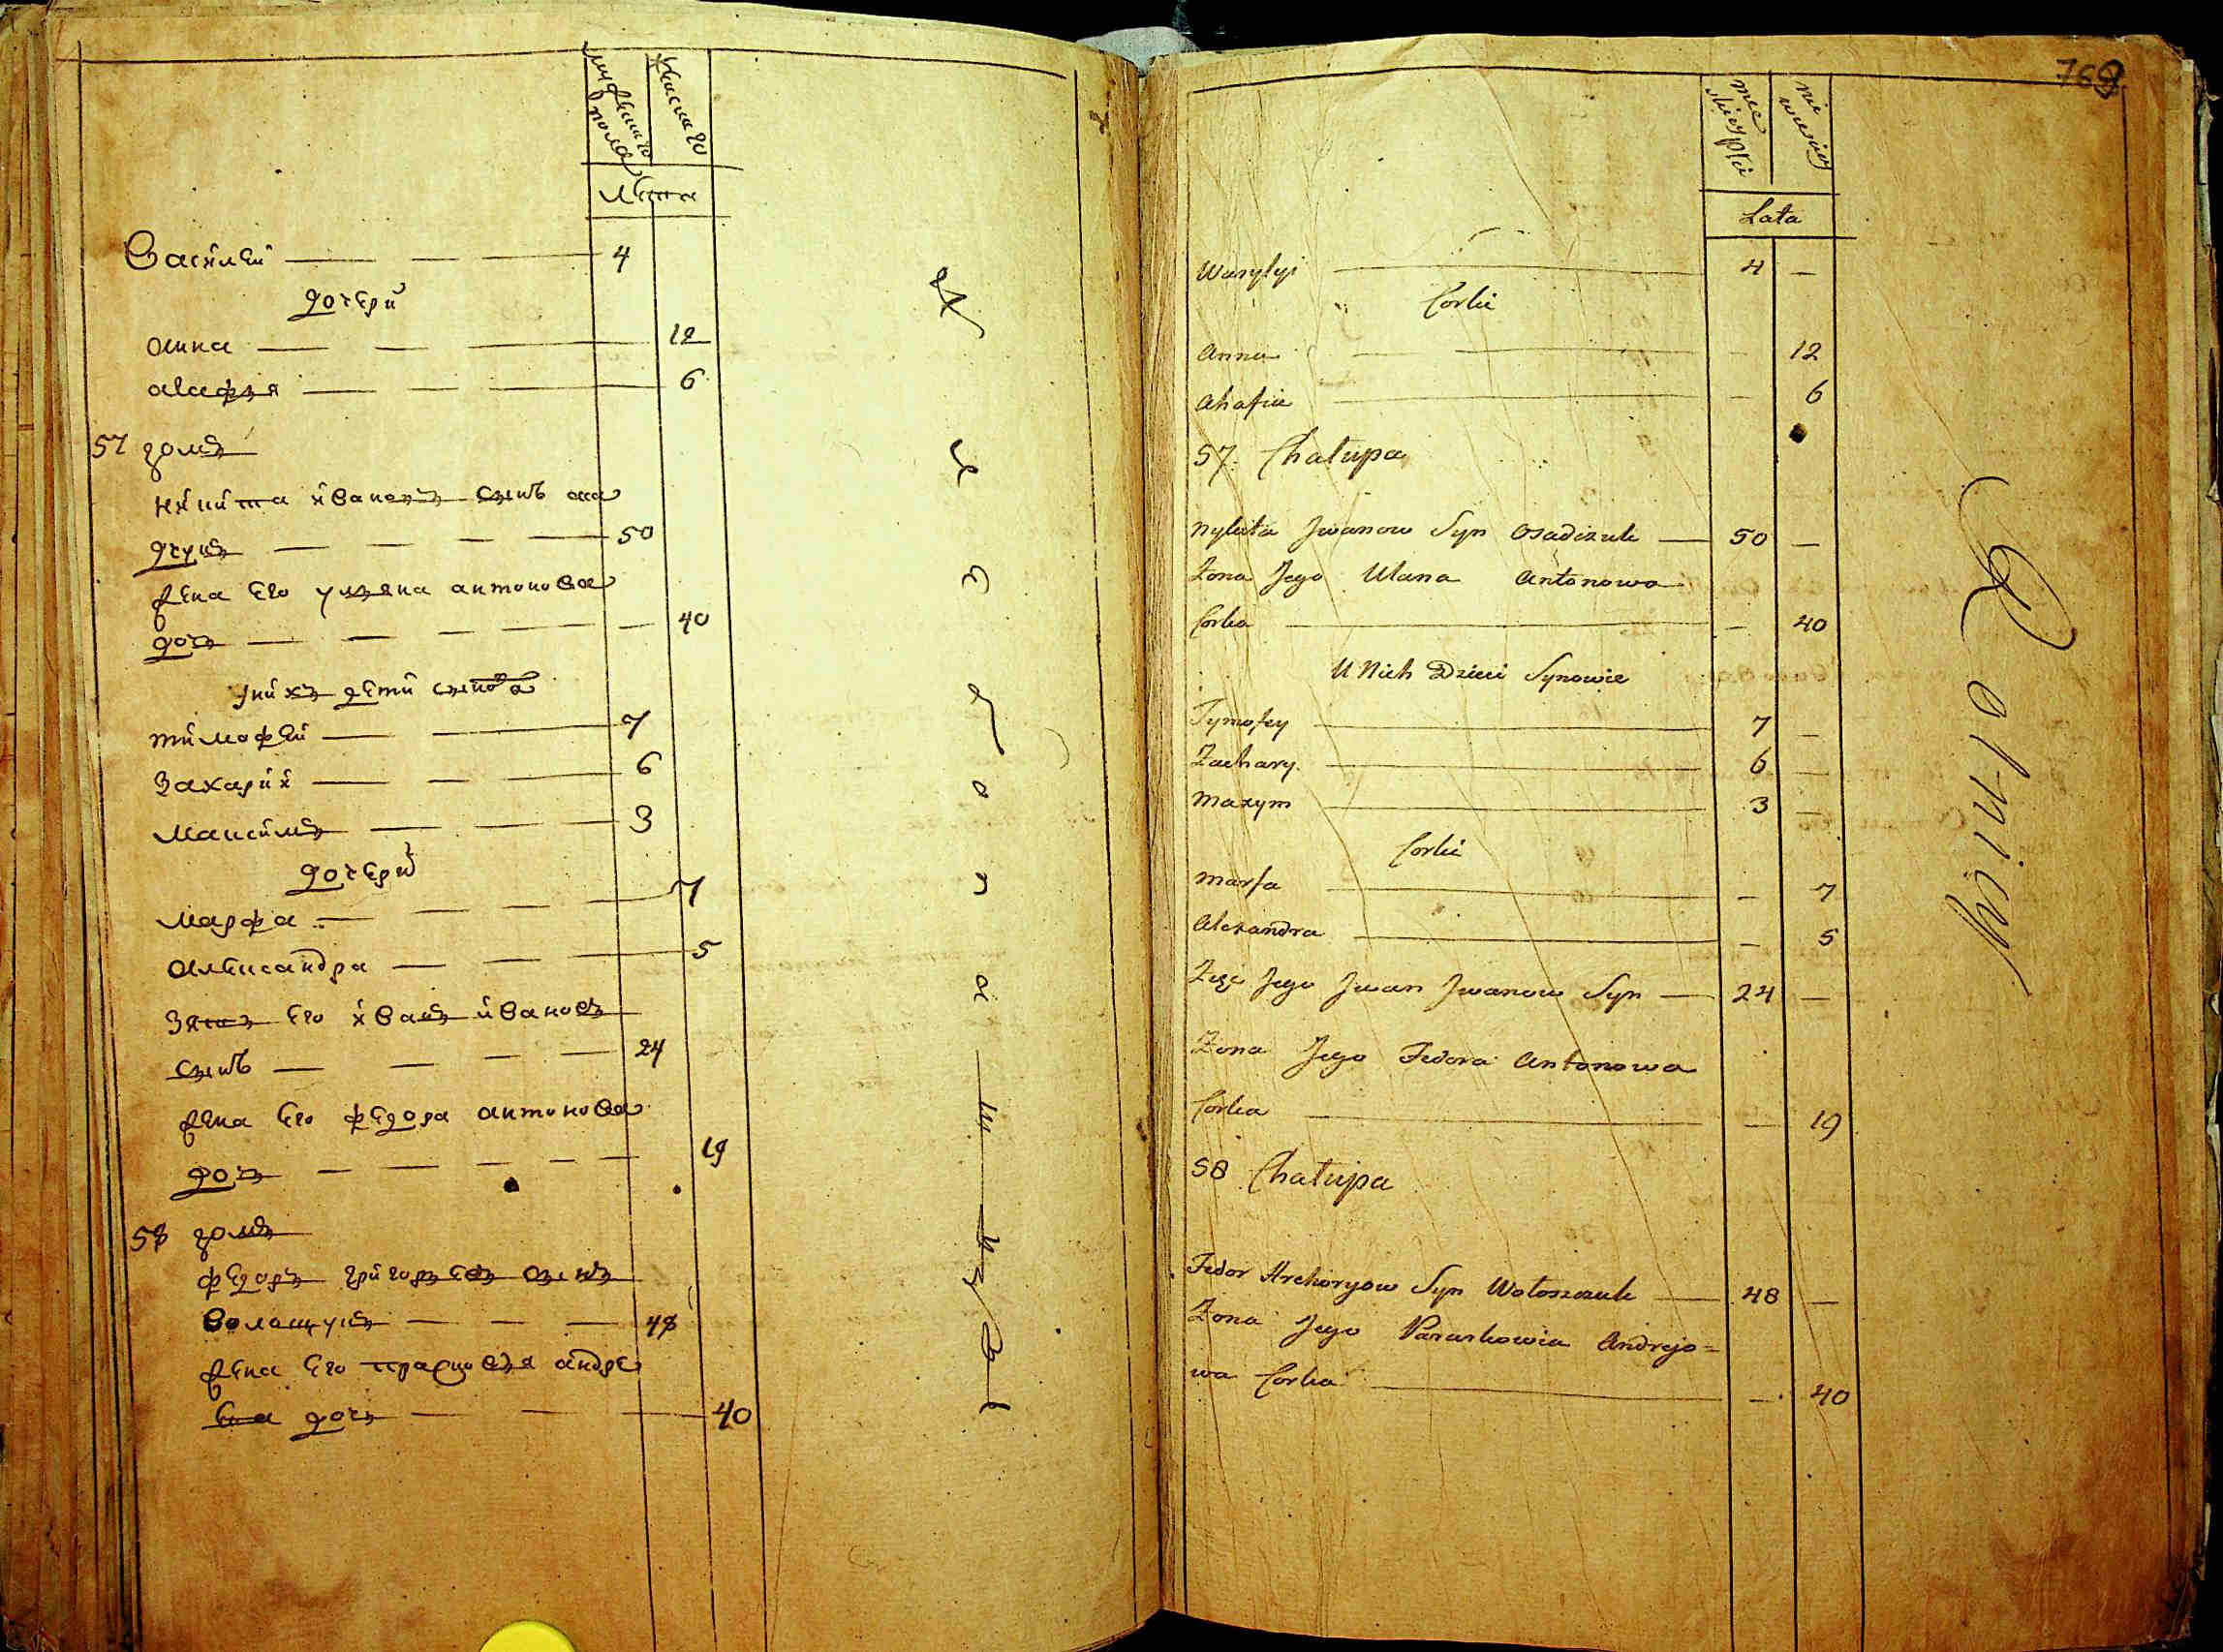 мужеска пола
женска го
лѣта
Василей 4
дочери
анна 12
агафия 6
57 домъ
никита ивановъ сынъ оса
дчукъ 50
жена его улияна антонова
дочь 40
у нихъ дети сынова
тимофей 7
Захарий 6
Максимъ 3
дочери
Марфа 7
александра 5
Зять его иванъ ивановъ
сынъ 24
жена его федора антонова
дочь 19
58 домъ
федоръ григорьевъ сынъ
Волощукъ 48
жена его прасковия андре
ева дочь 40
769
mę skiey płci
nie wiesciey
Lata
Wasylyi 4 —
Corki
Anna — 12
Ahafia — 6
57. Chałupa
Nykita Jwanow Syn Osadczuk 50 —
Żona Jego Ulana Antonowa
Corka — 40
U Nich Dzieci Synowie
Tymofey 7 —
Zachary 6 —
Maxym 3 —
Corki
Marfa — 7
Alexandra — 5
Zięć Jego Jwan Jwanow Syn 24 —
Żona Jego Fedora Antonowa
Corka — 19
58 Chałupa
Fedor Hrehoryow Syn Wołoszczuk 48 —
Żona Jego Paraskowia Andrejo=
wa Corka — 40
Rolnicy